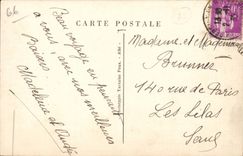 66
CARTE POSTALE
Beau voyage en pensant
à vous avec nos meilleures
pensées.
Madeleine et André
Madame et Mademoiselle
Brunnée
140 rue de Paris
Les Lilas
Seine